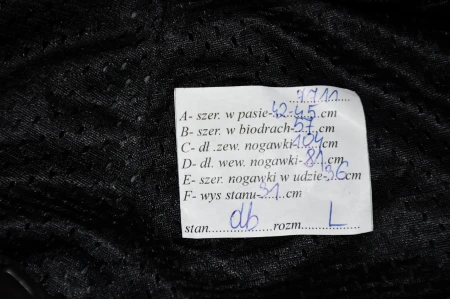 7711
A- szer. w pasie-42-45.cm
B- szer. w biodrach-57.cm
C- dł .zew. nogawki-104cm
D- dł. wew. nogawki-81.cm
E- szer. nogawki w udzie-36cm
F- wys stanu-31...cm
stan....db.......rozm.....L.....